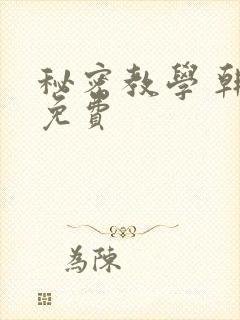 秘密教學 韓
免費
為陳